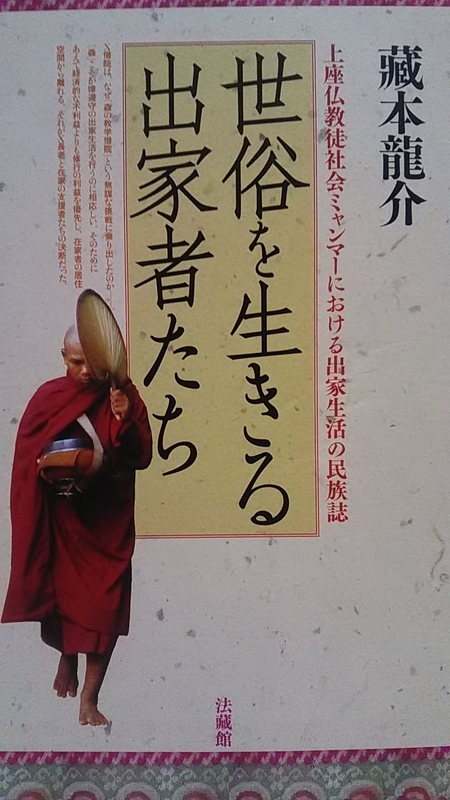 藏本龍介
上座仏教徒社会ミャンマーにおける出家生活の民族誌
世俗を生きる
出家者たち
X僧院は、なぜ「森の教学僧院」という無謀な挑戦に乗り出したのか。
「森」こそが律遵守の出家生活を行うのに相応しい。そのために
あえて経済的な不利益よりも修行の利益を優先し、在家者の居住
空間から離れる。それがX長老と在家の支援者たちの決断だった。
法藏館